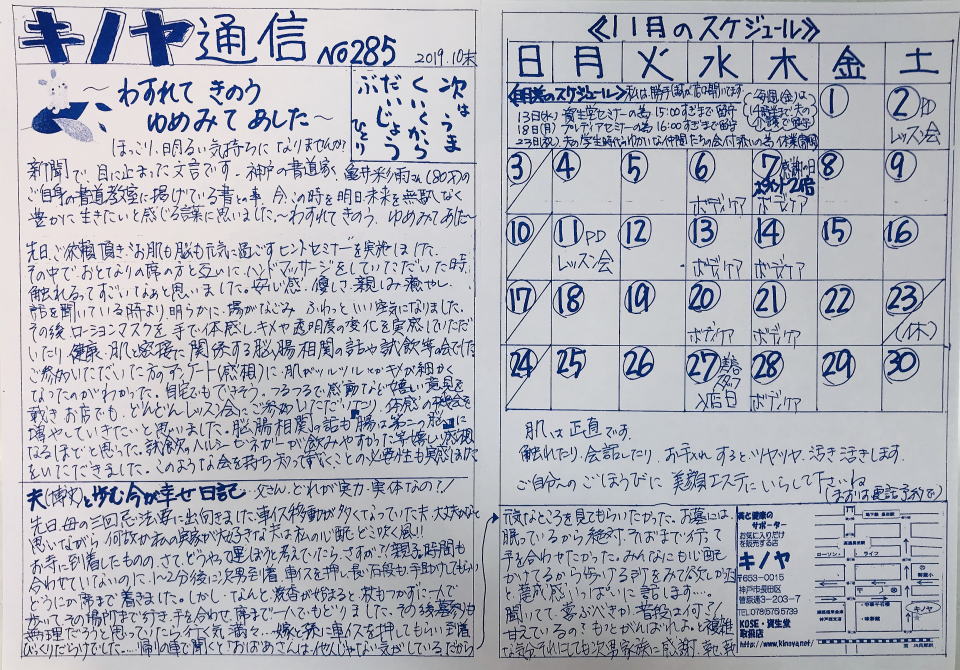 キノヤ通信 No285 2019.10末
わすれて きのう
ゆめみて あした〜
次はうま
くいくから
だいじょう
ぶ ひとり
ほっこり、明るい気持ちになりませんか?
新聞で、目に止まった文言です。神戸の書道家、
ご自身の書道教室に掲げている書との事、今、この時を明日、未来を無駄なく
豊かに生きたいと感じる言葉に思いました〜わすれてきのう、ゆめみてあした〜
先日、ご依頼頂き、お肌も脳も元気に過ごすヒントセミナーを実施しました。
その中でおとなりの席の方と互いにハンドマッサージをしていただいた時、
触れるってすごいなぁと思いました。安心感、優しさ、親しみ、癒やし、
話を聞いている時より明らかに、場がなごみ ふわっといい空気になりました。
その後ローションマスクを手で体感し、キメや透明度の変化を実感していただ
いたり 健康・肌と密接に関係する脳腸相関の話や試飲等
ご参加いただいた方のアンケート(感想)に、肌がツルツルとかキメが細かく
なったのがわかった。自宅でもできそう。つるつるで感動など嬉しい意見を
戴き お店でも、どんどんレッスン会にご参加いただいたり、体感の機会を
増やしていきたいと思いました。脳腸相関の話も腸は第二の脳に
なるほどと思った。試飲のヘルシービネガーが飲みやすかった等嬉しい感想
をいただきました。このような会を持ち、知って頂くことの必要性も実感
夫(博幸)と歩む今が幸せ日記…父さん、どれが実力・実体なの?!
先日、母の三回忌法要に出向きました。車イス移動が多くなっていた夫、大丈夫かなと
思いながら 何故か私の実家が大好きな夫は私の心配どこ吹く風!!
お寺に到着したものの、さて、どうやって運ぼうと考えていたら、さすが?!親子、時間も
合わせていないのに、1〜2分後に次男到着、車イスを押し、長い石段も手助けしてもらい
どうにか席まで着きました。しかし…なんと、焼香が始まると、杖もつかずに一人で
歩いてその場所まで行き、手を合わせ、席まで一人でもどりました。その後墓参りも
無理だろうと思っていたら行く気満々…嫁と孫に車イスを押してもらい到着
びっくりだらけでした…。帰りの車で聞くと「おばあさんは、他人じゃない気がしている。だから
元気なところを見てもらいたかった。お墓には、
眠っているから絶対、そばまで行って
手を合わせたかった。みんなにも心配
かけてるから歩ける所をみて欲しかった
と 感謝いっぱいに話します…
聞いてて喜ぶべきか、普段は何?!
甘えているの?もっとがんばれよ。と複雑
な気分 それにしても次男家族に感謝、幸せ、
《11月のスケジュール》
日 月 火 水 木 金 土
< のスケジュール>
13日(水) 資生堂セミナーの為 15:00すぎまで留守
18日(月) プレディアセミナーの為 16:00すぎまで留守
23日(祝)
1 2 PD
レッスン会
3 4 5 6 7 感謝の日 8 9
ポイント2倍
ボディケア ボディケア
10 11 PD 12 13 14 15 16
レッスン会 ボディケア ボディケア
17 18 19 20 21 22 23
ボディケア ボディケア (休)
24 25 26 27 28 29 30
入店日 ボディケア
肌は正直です。
触れたり、会話したり、お手入れするとツヤツヤ、活き活きします。
ご自分へのごほうびに 美顔エステにいらして下さいね
(まずは電話予約で)
美と健康の
サポーター
お気に入り
を販売する店
キノヤ
〒653-0015
神戸市長田区
菅原通3-203-7
TEL078(576)5739
KOSE・資生堂
取扱店
http://www.kinoya.net/
ローソン
ライフ
キノヤ